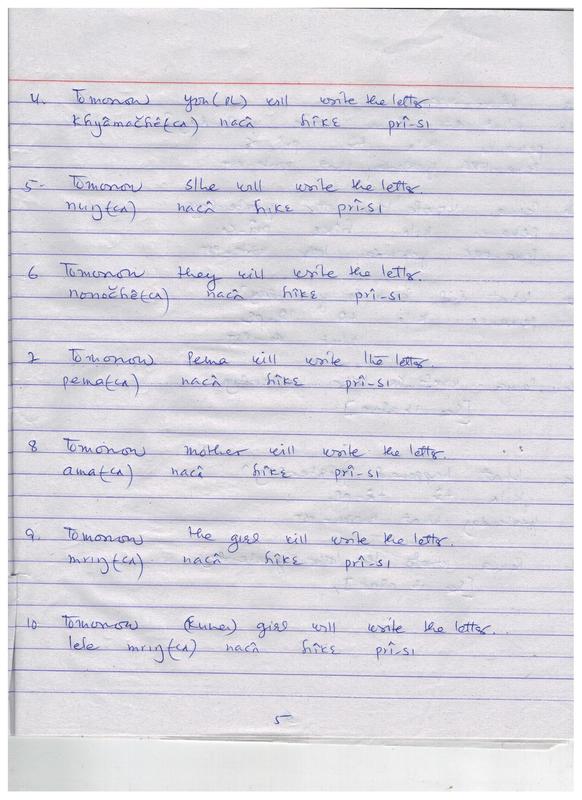 4. Tomorrow you(PL) will write the letter.
khyâmačhê(cʌ) nacâ hîkɛ prî-sɪ
5- Tomorrow s/he will write the letter.
nuŋ(cʌ) nacâ hɪkɛ prî-sɪ
6 Tomorrow they will write the letter.
nonočhê(cʌ) nacâ hîkɛ prî-sɪ
7 Tomorrow Pema will write the letter.
pema(cʌ) nacâ hîkɛ prî-sɪ
8 Tomorrow mother will write the letter.
ama(cʌ) nacâ hîkɛ prî-sɪ
9. Tomorrow the girl will write the letter.
mrɪŋ(cʌ) nacâ hîkɛ prî-sɪ
10 Tomorrow girl will write the letter.
lele mrɪŋ(cʌ) nacâ hîkɛ prî-sɪ
5